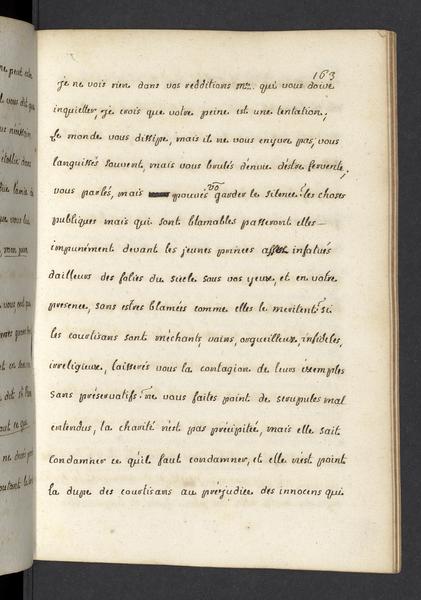 163
je ne vois rien dans vos redditions mme. qui vous doive
inquietter, je crois que votre peine est une tentation,
le monde vous dissipe, mais il ne vous enyvre pas, vous
languissés souvent, mais vous brulés d'envie d'éstre fervente,
vous parlés, mais pouvés vo garder le silence? les choses
publiques mais qui sont blamables passeront elles
impunément devant les jeunes princes infatués
dailleurs des folies du siecle sous vos yeux, et en votre
presence, sans estres blamées comme elles le meritent? si
les courtisans sont méchants, vains, orgueilleux, infideles,
irreligieux, laisserés vous la contagion de leurs exemples
sans préservatifs? ne vous faites point de scrupules mal
entendus, la charité n'est pas précipitée, mais elle sait
condamner ce qu'il faut condamner, et elle n'est point
la dupe des courtisans au prejudice des innocens qui